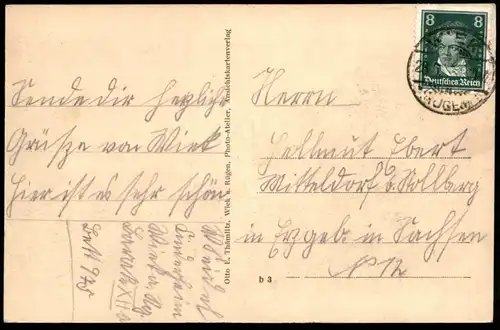 Sende dir herzliche
Grüsze von Wiek
hier ist es sehr schön
Kinderheim
Wiek a. Rg.
Otto E. Thämlitz, Wiek a. Rügen, Photo-Atelier, Ansichtskartenverlag
b 3
8 8
Deutsches Reich
RÜGEN
Herrn
Hellmut Ebert
Mitteldorf b Stollberg
in Erzgeb. in Sachsen
No 12